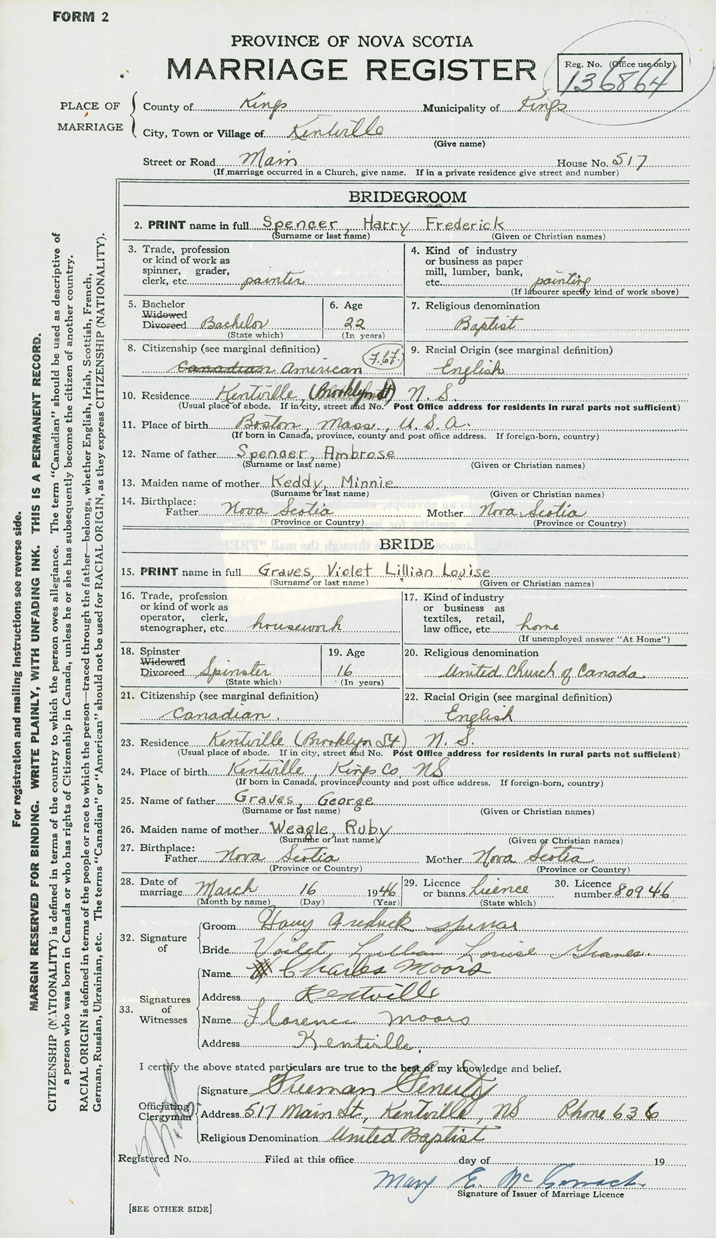 FORM 2
PROVINCE OF NOVA SCOTIA
MARRIAGE REGISTER
Reg. No. (Office use only)
136864
PLACE OF MARRIAGE
County of Kings Municipality of Kings
City, Town or Village of Kentville
(Give name)
Street or Road Main House No. 517
(If marriage occurred in a Church, give name. If in a private residence give street and number)
BRIDEGROOM
2. PRINT name in full Spencer, Harry Frederick
(Surname or last name) (Given or Christian names)
3. Trade, profession or kind of work as spinner, grader, clerk, etc. painter
4. Kind of industry or business as paper mill, lumber, bank, etc. painting
(If labourer specify kind of work above)
5. Bachelor Widowed Divorced Bachelor
(State which)
6. Age 22
(In years)
7. Religious denomination
Baptist
8. Citizenship (see marginal definition) 767
Canadian American
9. Racial Origin (see marginal definition)
English
10. Residence Kentville, (Brooklyn St) N. S.
(Usual place of abode. If in city, street and No. Post Office address for residents in rural parts not sufficient)
11. Place of birth Boston, Mass., U. S. A.
(If born in Canada, province, county and post office address. If foreign-born, country)
12. Name of father Spencer, Ambrose
(Surname or last name) (Given or Christian names)
13. Maiden name of mother Keddy, Minnie
(Surname or last name) (Given or Christian names)
14. Birthplace: Father Nova Scotia Mother Nova Scotia
(Province or Country) (Province or Country)
BRIDE
15. PRINT name in full Graves, Violet Lillian Louise
(Surname or last name) (Given or Christian names)
16. Trade, profession or kind of work as operator, clerk, stenographer, etc. housework
17. Kind of industry or business as textiles, retail, law office, etc. home
(If unemployed answer "At Home")
18. Spinster Widowed Divorced Spinster
(State which)
19. Age 16
(In years)
20. Religious denomination
United Church of Canada.
21. Citizenship (see marginal definition)
Canadian.
22. Racial Origin (see marginal definition)
English
23. Residence Kentville (Brooklyn St) N. S.
(Usual place of abode. If in city, street and No. Post Office address for residents in rural parts not sufficient)
24. Place of birth Kentville, Kings Co, NS
(If born in Canada, province, county and post office address. If foreign-born, country)
25. Name of father Graves, George
(Surname or last name) (Given or Christian names)
26. Maiden name of mother Weagle, Ruby
(Surname or last name) (Given or Christian names)
27. Birthplace: Father Nova Scotia Mother Nova Scotia
(Province or Country) (Province or Country)
28. Date of marriage March 16 1946
(Month by name) (Day) (Year)
29. Licence or banns Licence
(State which)
30. Licence number 80946
32. Signature of
Groom Harry Fredrick Spencer
Bride Violet Lillian Louise Graves.
33. Signatures of Witnesses
Name Charles Moors
Address Kentville
Name Florence Moors
Address Kentville
I certify the above stated particulars are true to the best of my knowledge and belief.
Officiating Clergyman
Signature Freeman Fenerty
Address 517 Main St., Kentville, NS Phone 636
Religious Denomination United Baptist
Registered No. Filed at this office day of 19
Mary E. McCormack
Signature of Issuer of Marriage Licence
[SEE OTHER SIDE]
For registration and mailing instructions see reverse side.
MARGIN RESERVED FOR BINDING. WRITE PLAINLY, WITH UNFADING INK. THIS IS A PERMANENT RECORD.
CITIZENSHIP (NATIONALITY) is defined in terms of the country to which the person owes allegiance. The term "Canadian" should be used as descriptive of
a person who was born in Canada or who has rights of Citizenship in Canada, unless he or she has subsequently become the citizen of another country.
RACIAL ORIGIN is defined in terms of the people or race to which the person—traced through the father—belongs, whether English, Irish, Scottish, French,
German, Russian, Ukrainian, etc. The terms "Canadian" or "American" should not be used for RACIAL ORIGIN, as they express CITIZENSHIP (NATIONALITY).